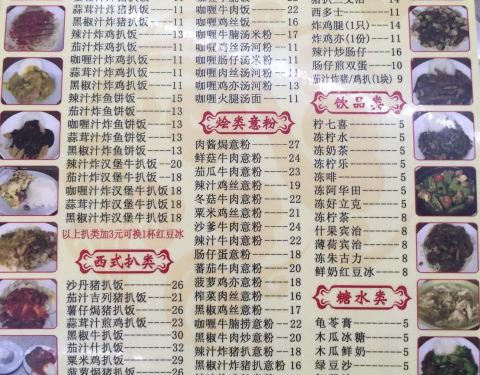 蒜茸汁炸猪扒饭---11
黑椒汁炸猪扒饭---11
辣汁炸鸡扒饭-----11
茄汁炸鸡扒饭-----11
咖喱汁炸鸡扒饭---11
蒜茸汁炸鸡扒饭---11
黑椒汁炸鸡扒饭---11
辣汁炸鱼饼饭-----15
茄汁炸鱼饼饭-----13
咖喱汁炸鱼饼饭---13
蒜茸汁炸鱼饼饭---13
黑椒汁炸鱼饼饭---13
辣汁炸汉堡牛扒饭--20
茄汁炸汉堡牛扒饭--18
咖喱汁炸汉堡牛扒饭18
蒜茸汁炸汉堡牛扒饭18
黑椒汁炸汉堡牛扒饭18
以上扒类加3元可换1杯红豆冰
西式扒类
沙丹猪扒饭------26
茄汁吉列猪扒饭---21
薯仔焗猪扒饭-----26
蒜茸汁煎鸡扒饭---20
黑椒牛扒饭------20
茄汁什扒饭------32
粟米鸡扒饭------20
菠萝焗猪扒饭-----26
咖喱牛肉饭------22
咖喱鸡丝饭------11
咖喱牛腩汤米粉---11
咖喱鸡丝汤河粉---11
咖喱肠仔汤米粉---11
咖喱肉丝汤河粉---11
咖喱牛肉汤河粉---11
咖喱火腿汤面-----11
烩类意粉
肉酱焗意粉------27
鲜菇牛肉意粉----24
茄瓜牛肉意粉----23
辣汁鸡丝意粉----24
冬菇牛肉意粉----24
粟米鸡丝意粉----24
沙爹牛肉意粉----23
辣汁牛肉意粉----23
肠仔蛋意粉------18
蕃茄牛肉意粉----20
菠萝鸡亦意粉----18
榨菜肉丝意粉----16
黑椒鸡丝意粉----17
咖喱牛腩捞意粉---22
黑椒牛肉炒意粉---20
辣汁炸猪扒意粉---18
黑椒汁炸猪扒意粉-18
西多士----------11
炸鸡腿(1只)----14
炸鸡亦(1份)----11
辣汁炒肠仔------16
肠仔煎双蛋------16
茄汁炸猪/鸡扒(1块) 9
饮品类
柠七喜---------5
冻柠水---------5
冻奶茶---------5
冻柠乐---------5
冻啡-----------5
冻阿华田-------5
冻好立克-------5
冻柠茶---------8
什果宾治-------5
薄荷宾治-------5
冻朱古力-------5
鲜奶红豆冰-----5
糖水类
龟苓膏---------5
木瓜冰糖-------5
木瓜鲜奶-------5
绿豆沙---------5